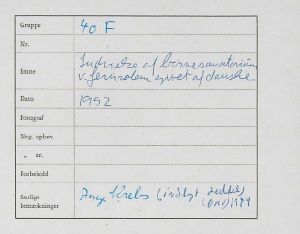 Gruppe 40 F
Nr.
Emne Indvielse af børnesanatorium
v. Jerusalem givet af danske.
Dato 1952
Fotograf
Neg. opbev.
" nr.
Forbehold
Særlige
bemærkninger Inge Krebs (indlagt seddel)
1984